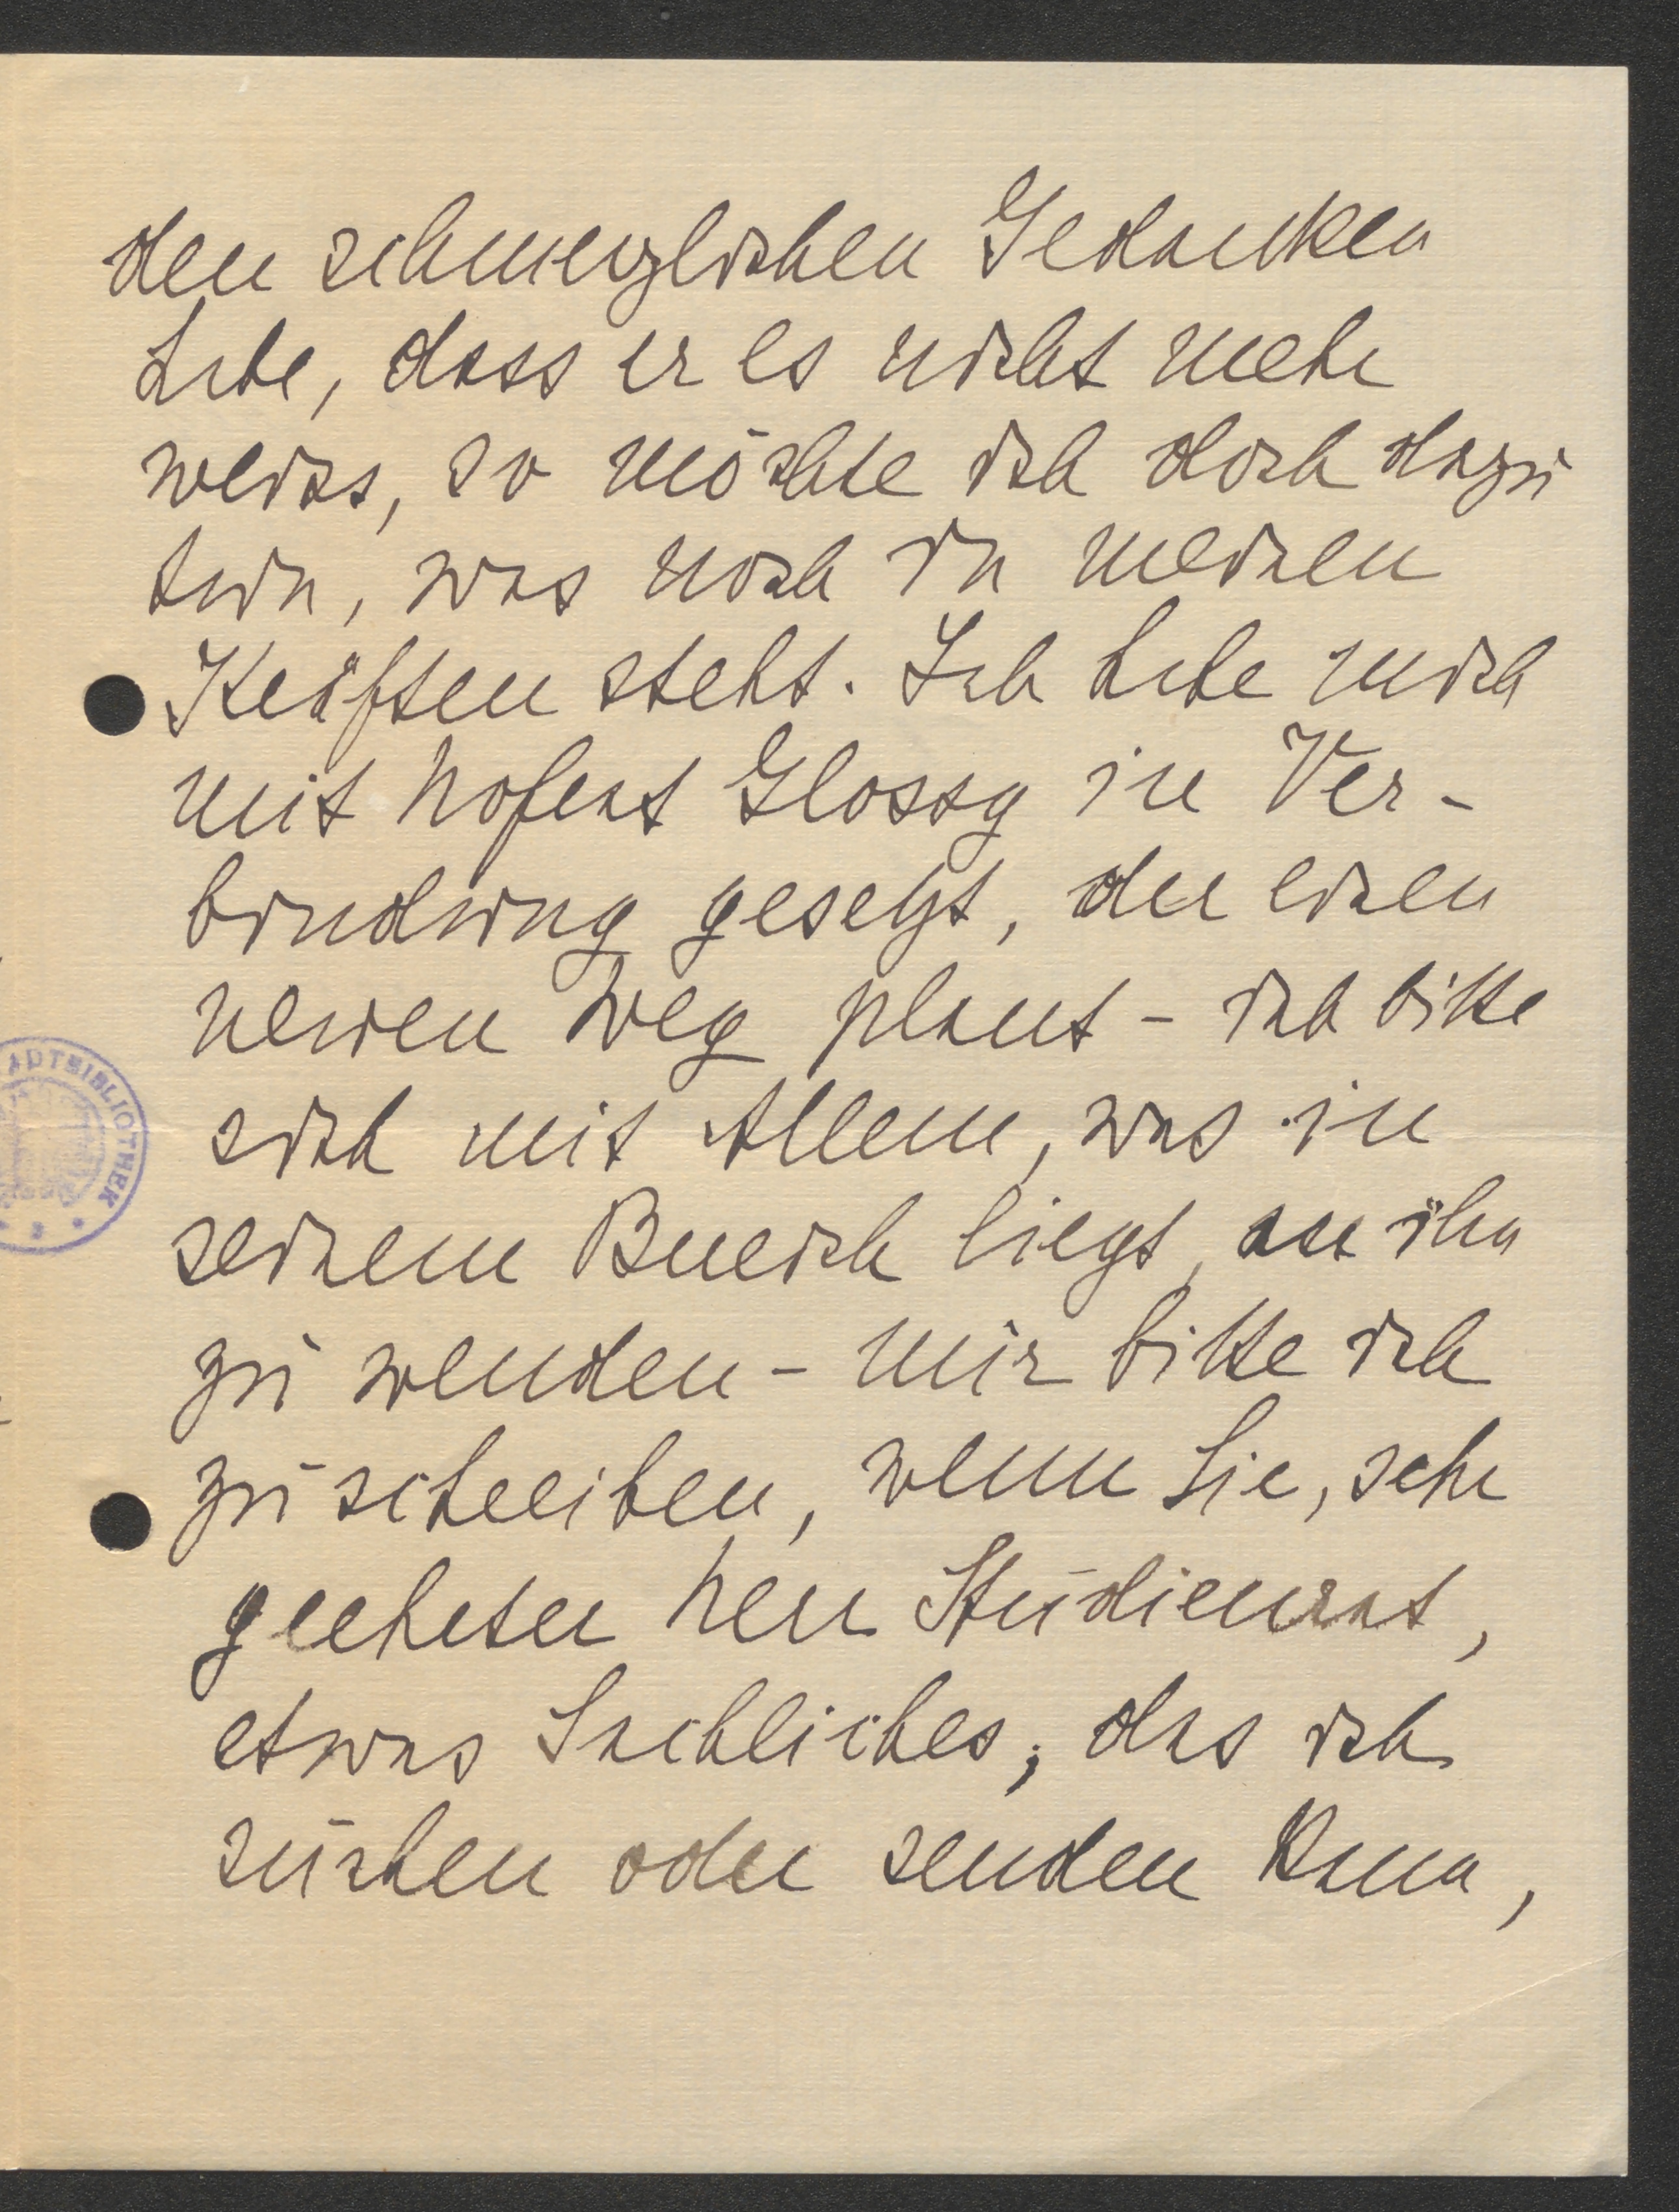 den schmerzlichen Gedanken
habe, dass er es nicht mehr
weiss, so möchte ich doch dazu
tun, was noch in meinen
Kräften steht. Ich habe mich
mit Hofrat Glossy in Ver-
bindung gesetzt, der einen
neuen Weg plant - ich bitte
sich mit Allem, was in
seinem Bereich liegt, an ihn
zu wenden - mir bitte ich
zu schreiben, wenn Sie, sehr
geehrter Herr Studienrat,
etwas Sachliches, das ich
suchen oder senden kann,
ADTBIBLIOTHEK